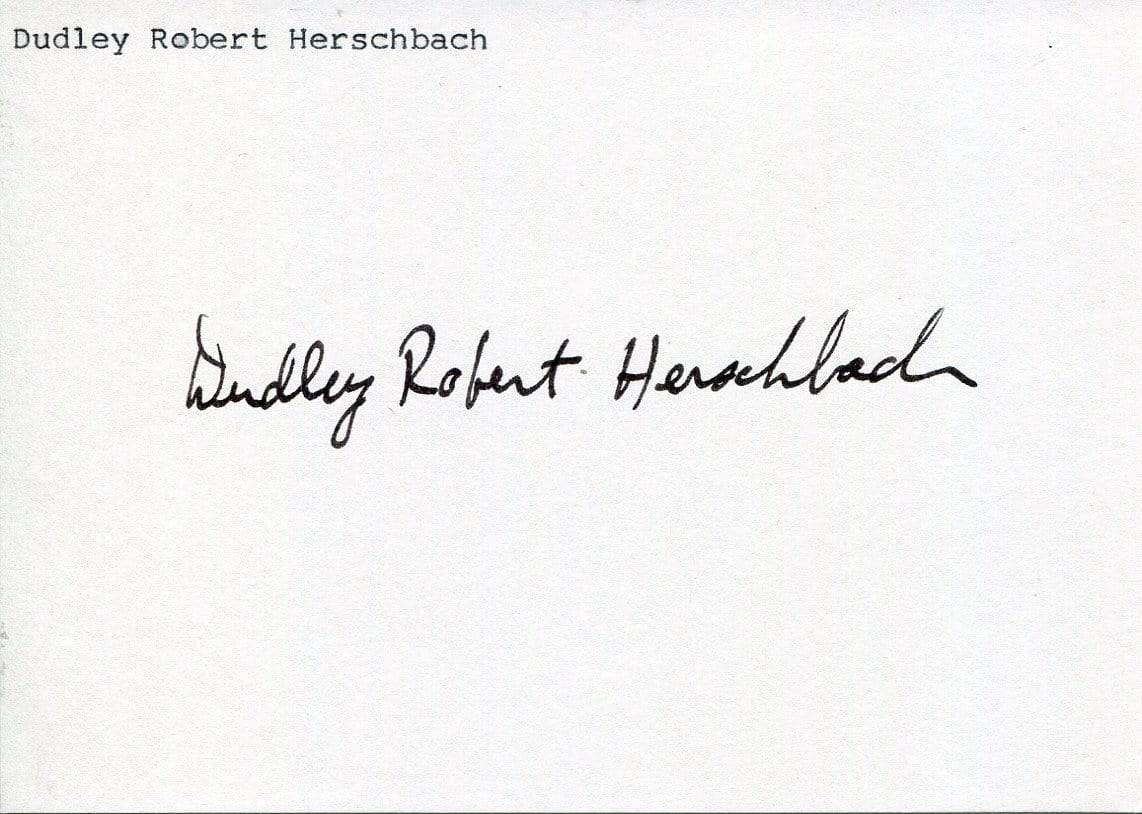 Dudley Robert Herschbach
Dudley Robert Herschbach